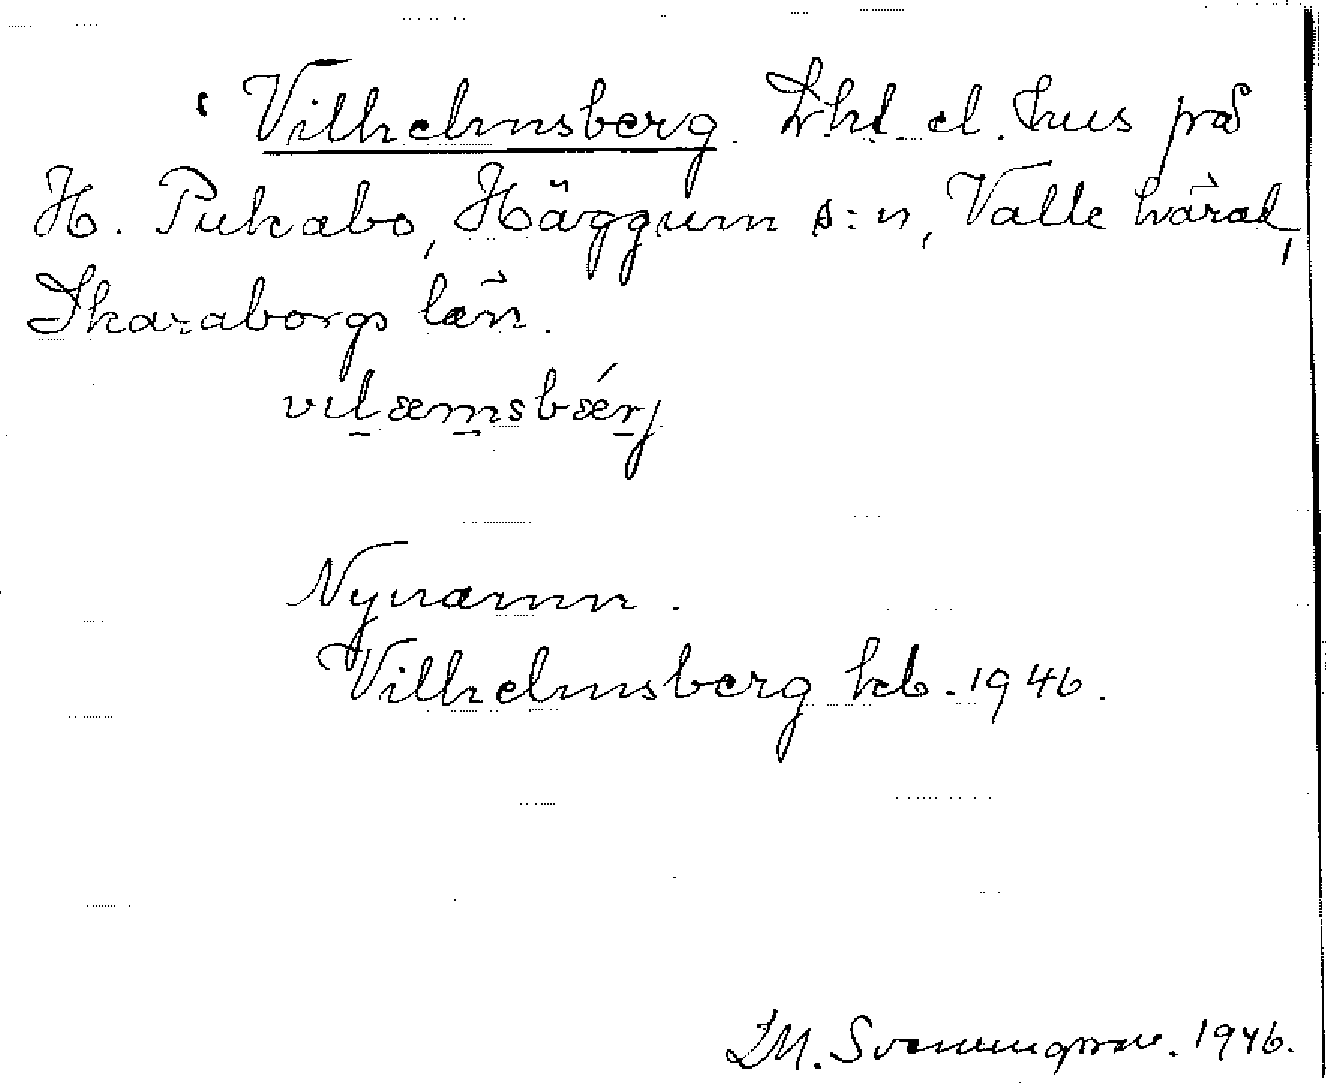 Vilhelmsberg. Lht. el. hus på
H. Pukabo, Häggum s:n, Valle härad,
Skaraborgs län.
vilæmsbǽrj
Nynamn.
Vilhelmsberg kb. 1946.
LM. Svenungsson. 1946.